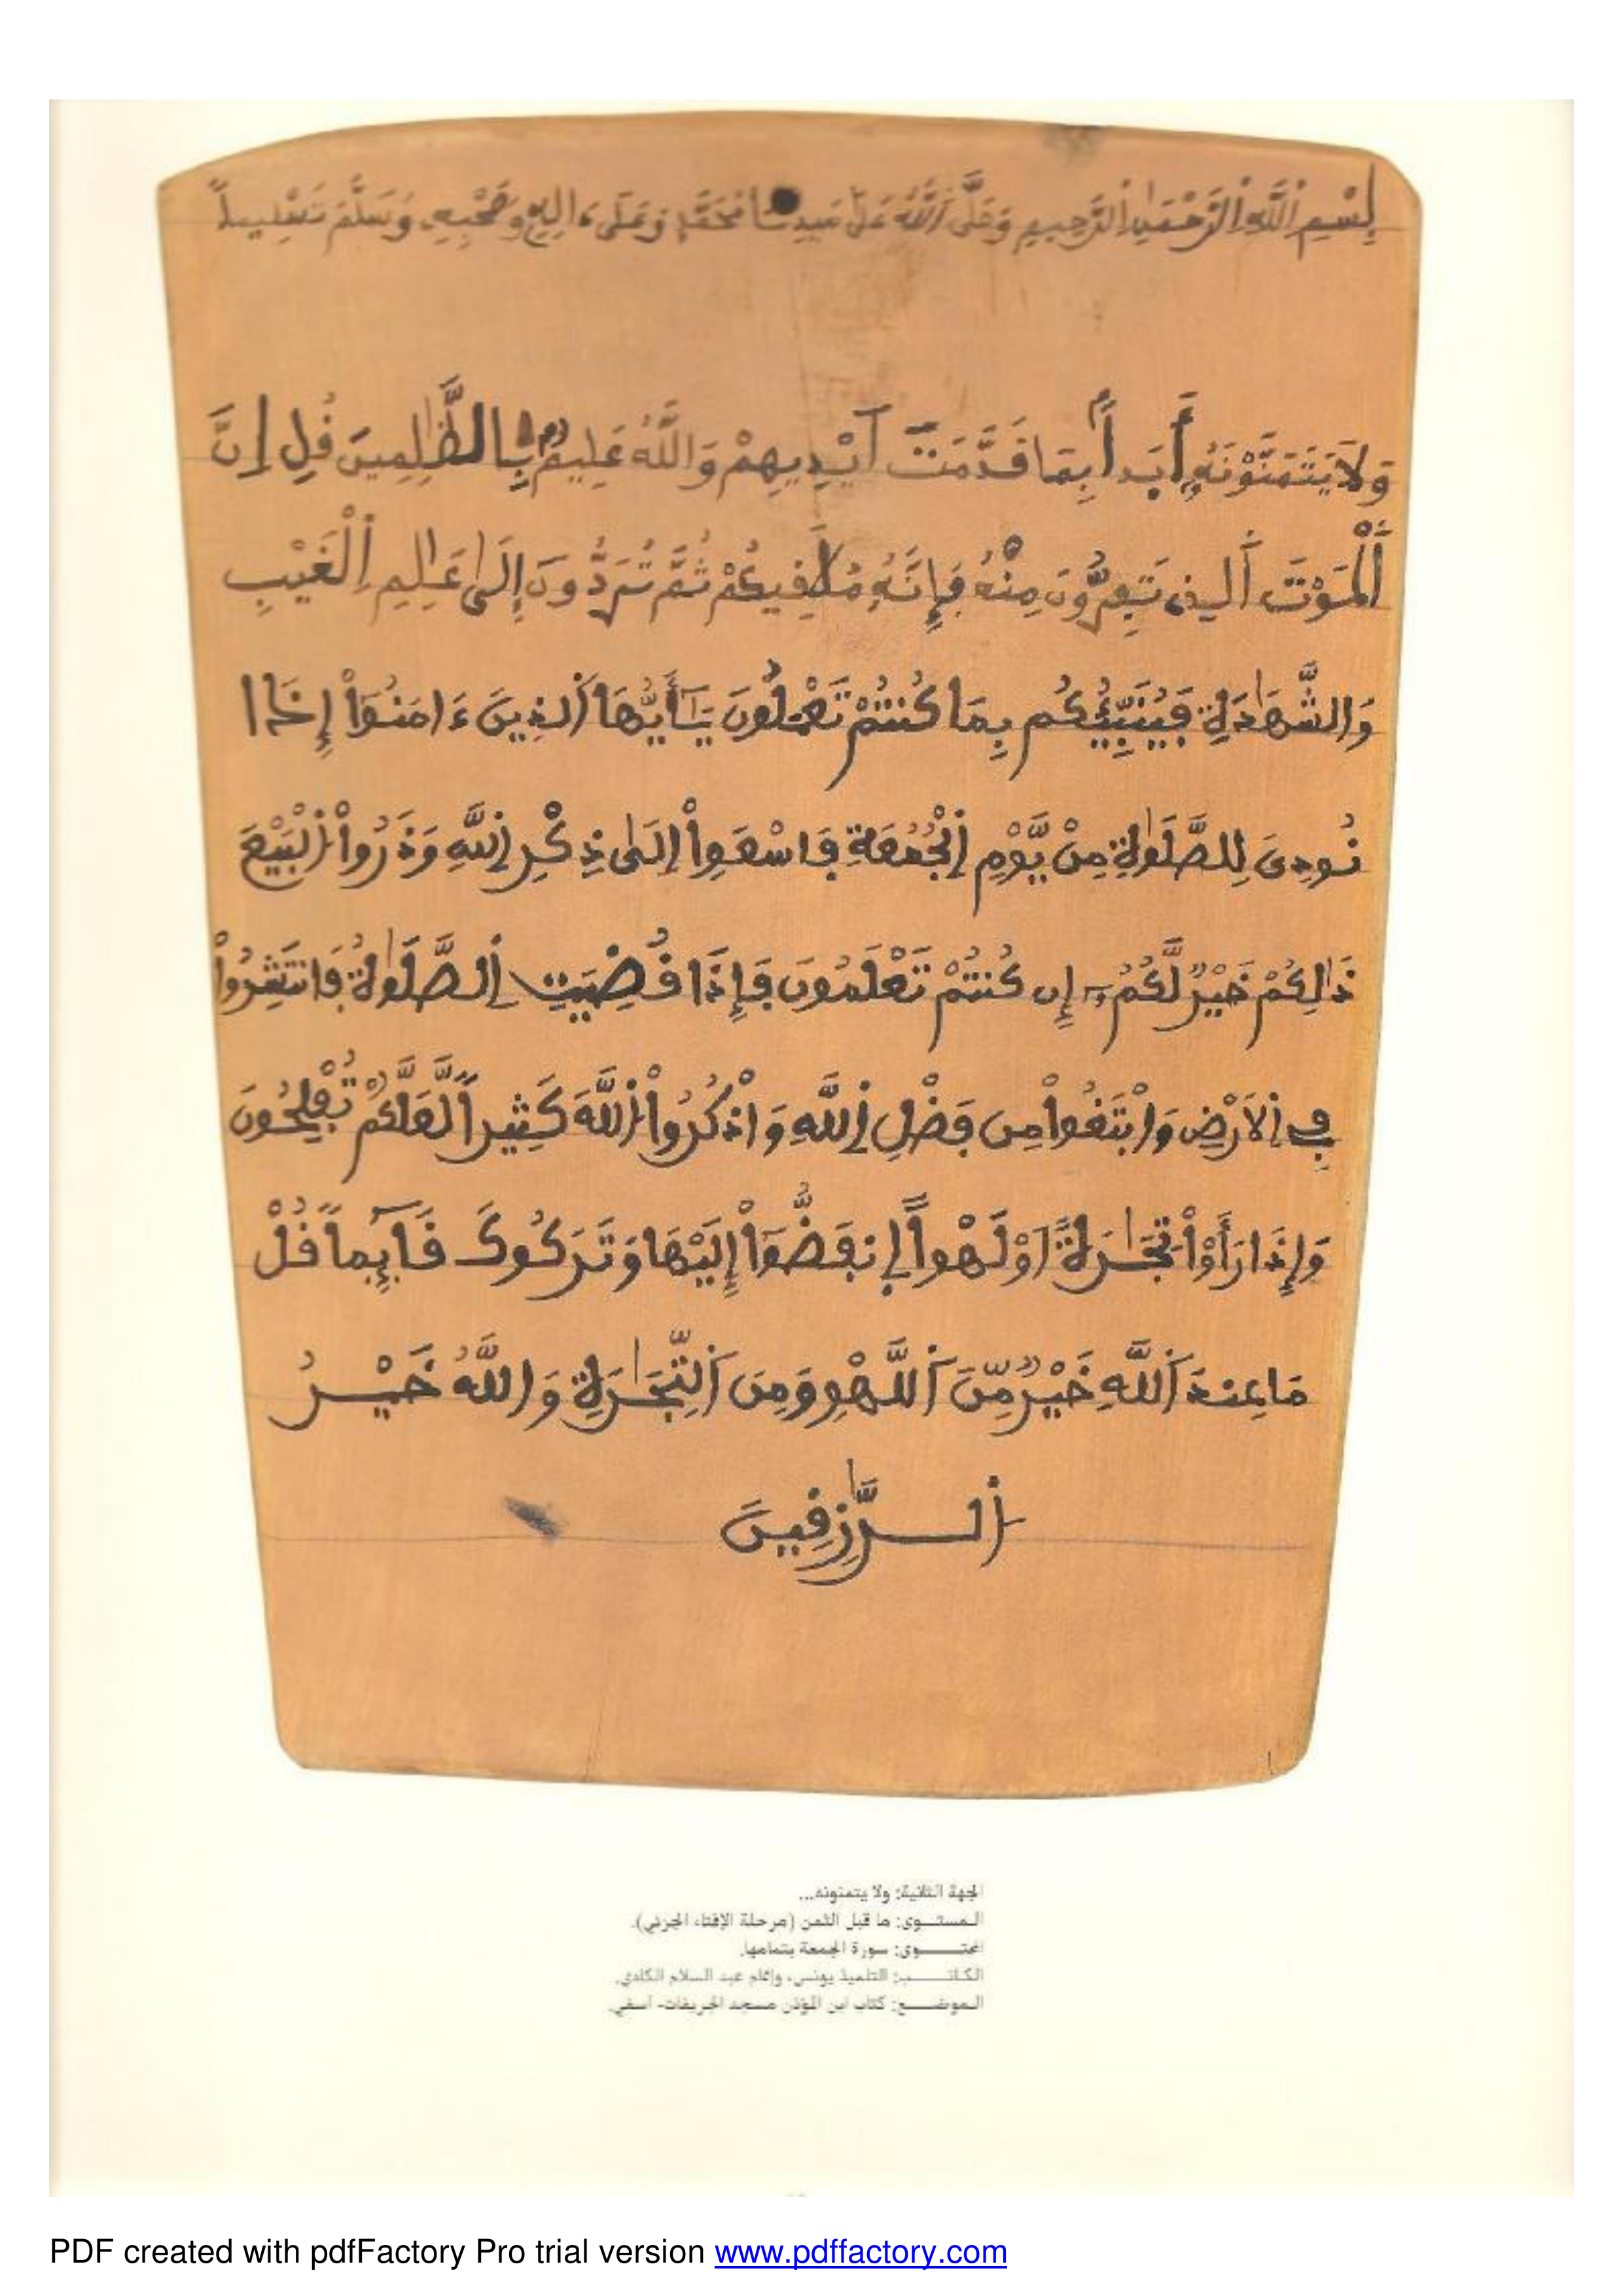 بِسْمِ اِ۬للَّهِ اِ۬لرَّحْمَٰنِ اِ۬لرَّحِيمِ وَصَلَّى اَ۬للَّهُ عَلَىٰ سَيِّدِنَا مُحَمَّدٍ وَعَلَىٰ ءَالِهِ وَصَحْبِهِ وَسَلَّمَ تَسْلِيماً
وَلَا يَتَمَنَّوْنَهُۥ أَبَداَۢ بِمَا قَدَّمَتَ اَيْدِيهِمْ وَاللَّهُ عَلِيمُۢ بِالظَّٰلِمِينَ قُلِ اِنَّ
اَ۬لْمَوْتَ اَ۬لذِے تَفِرُّونَ مِنْهُ فَإِنَّهُۥ مُلَٰفِيكُمْ ثُمَّ تُرَدُّونَ إِلَىٰ عَٰلِمِ اِ۬لْغَيْبِ
وَالشَّهَٰدَةِ فَيُنَبِّئُكُم بِمَا كُنتُمْ تَعْمَلُونَ يَٰٓأَيُّهَا اَ۬لذِينَ ءَامَنُوٓاْ إِذَا
نُودِىَ لِلصَّلَوٰةِ مِنْ يَّوْمِ اِ۬لْجُمُعَةِ فَاسْعَوِاْ اِلَىٰ ذِكْرِ اِ۬للَّهِ وَذَرُواْ اُ۬لْبَيْعَ
ذَٰلِكُمْ خَيْرٌ لَّكُمُۥٓ إِن كُنتُمْ تَعْلَمُونَ فَإِذَا قُضِيَتِ اِ۬لصَّلَوٰةُ فَانتَشِرُواْ
فِے اِ۬لَارْضِ وَابْتَغُواْ مِن فَضْلِ اِ۬للَّهِ وَاذْكُرُواْ اُ۬للَّهَ كَثِيراً لَّعَلَّكُمْ تُفْلِحُونَ
وَإِذَا رَأَوْاْ تِجَٰرَةً اَوْ لَهْواً اِ۪نفَضُّوٓاْ إِلَيْهَا وَتَرَكُوكَ قَآئِماً قُلْ
مَا عِندَ اَ۬للَّهِ خَيْرٌ مِّنَ اَ۬للَّهْوِ وَمِنَ اَ۬لتِّجَٰرَةِ وَاللَّهُ خَيْرُ
اُ۬لرَّٰزِقِينَ
الجهة الثانية: ولا يتمنونه...
المستوى: ما قبل الثمن (مرحلة الإفتاء الجزئي).
المحتوى: سورة الجمعة بتمامها.
الكاتب: التلميذ يونس، وإتمام عبد السلام الكادي.
الموضع: كتاب ابن المؤذن مسجد الجريفات- آسفي.
PDF created with pdfFactory Pro trial version www.pdffactory.com